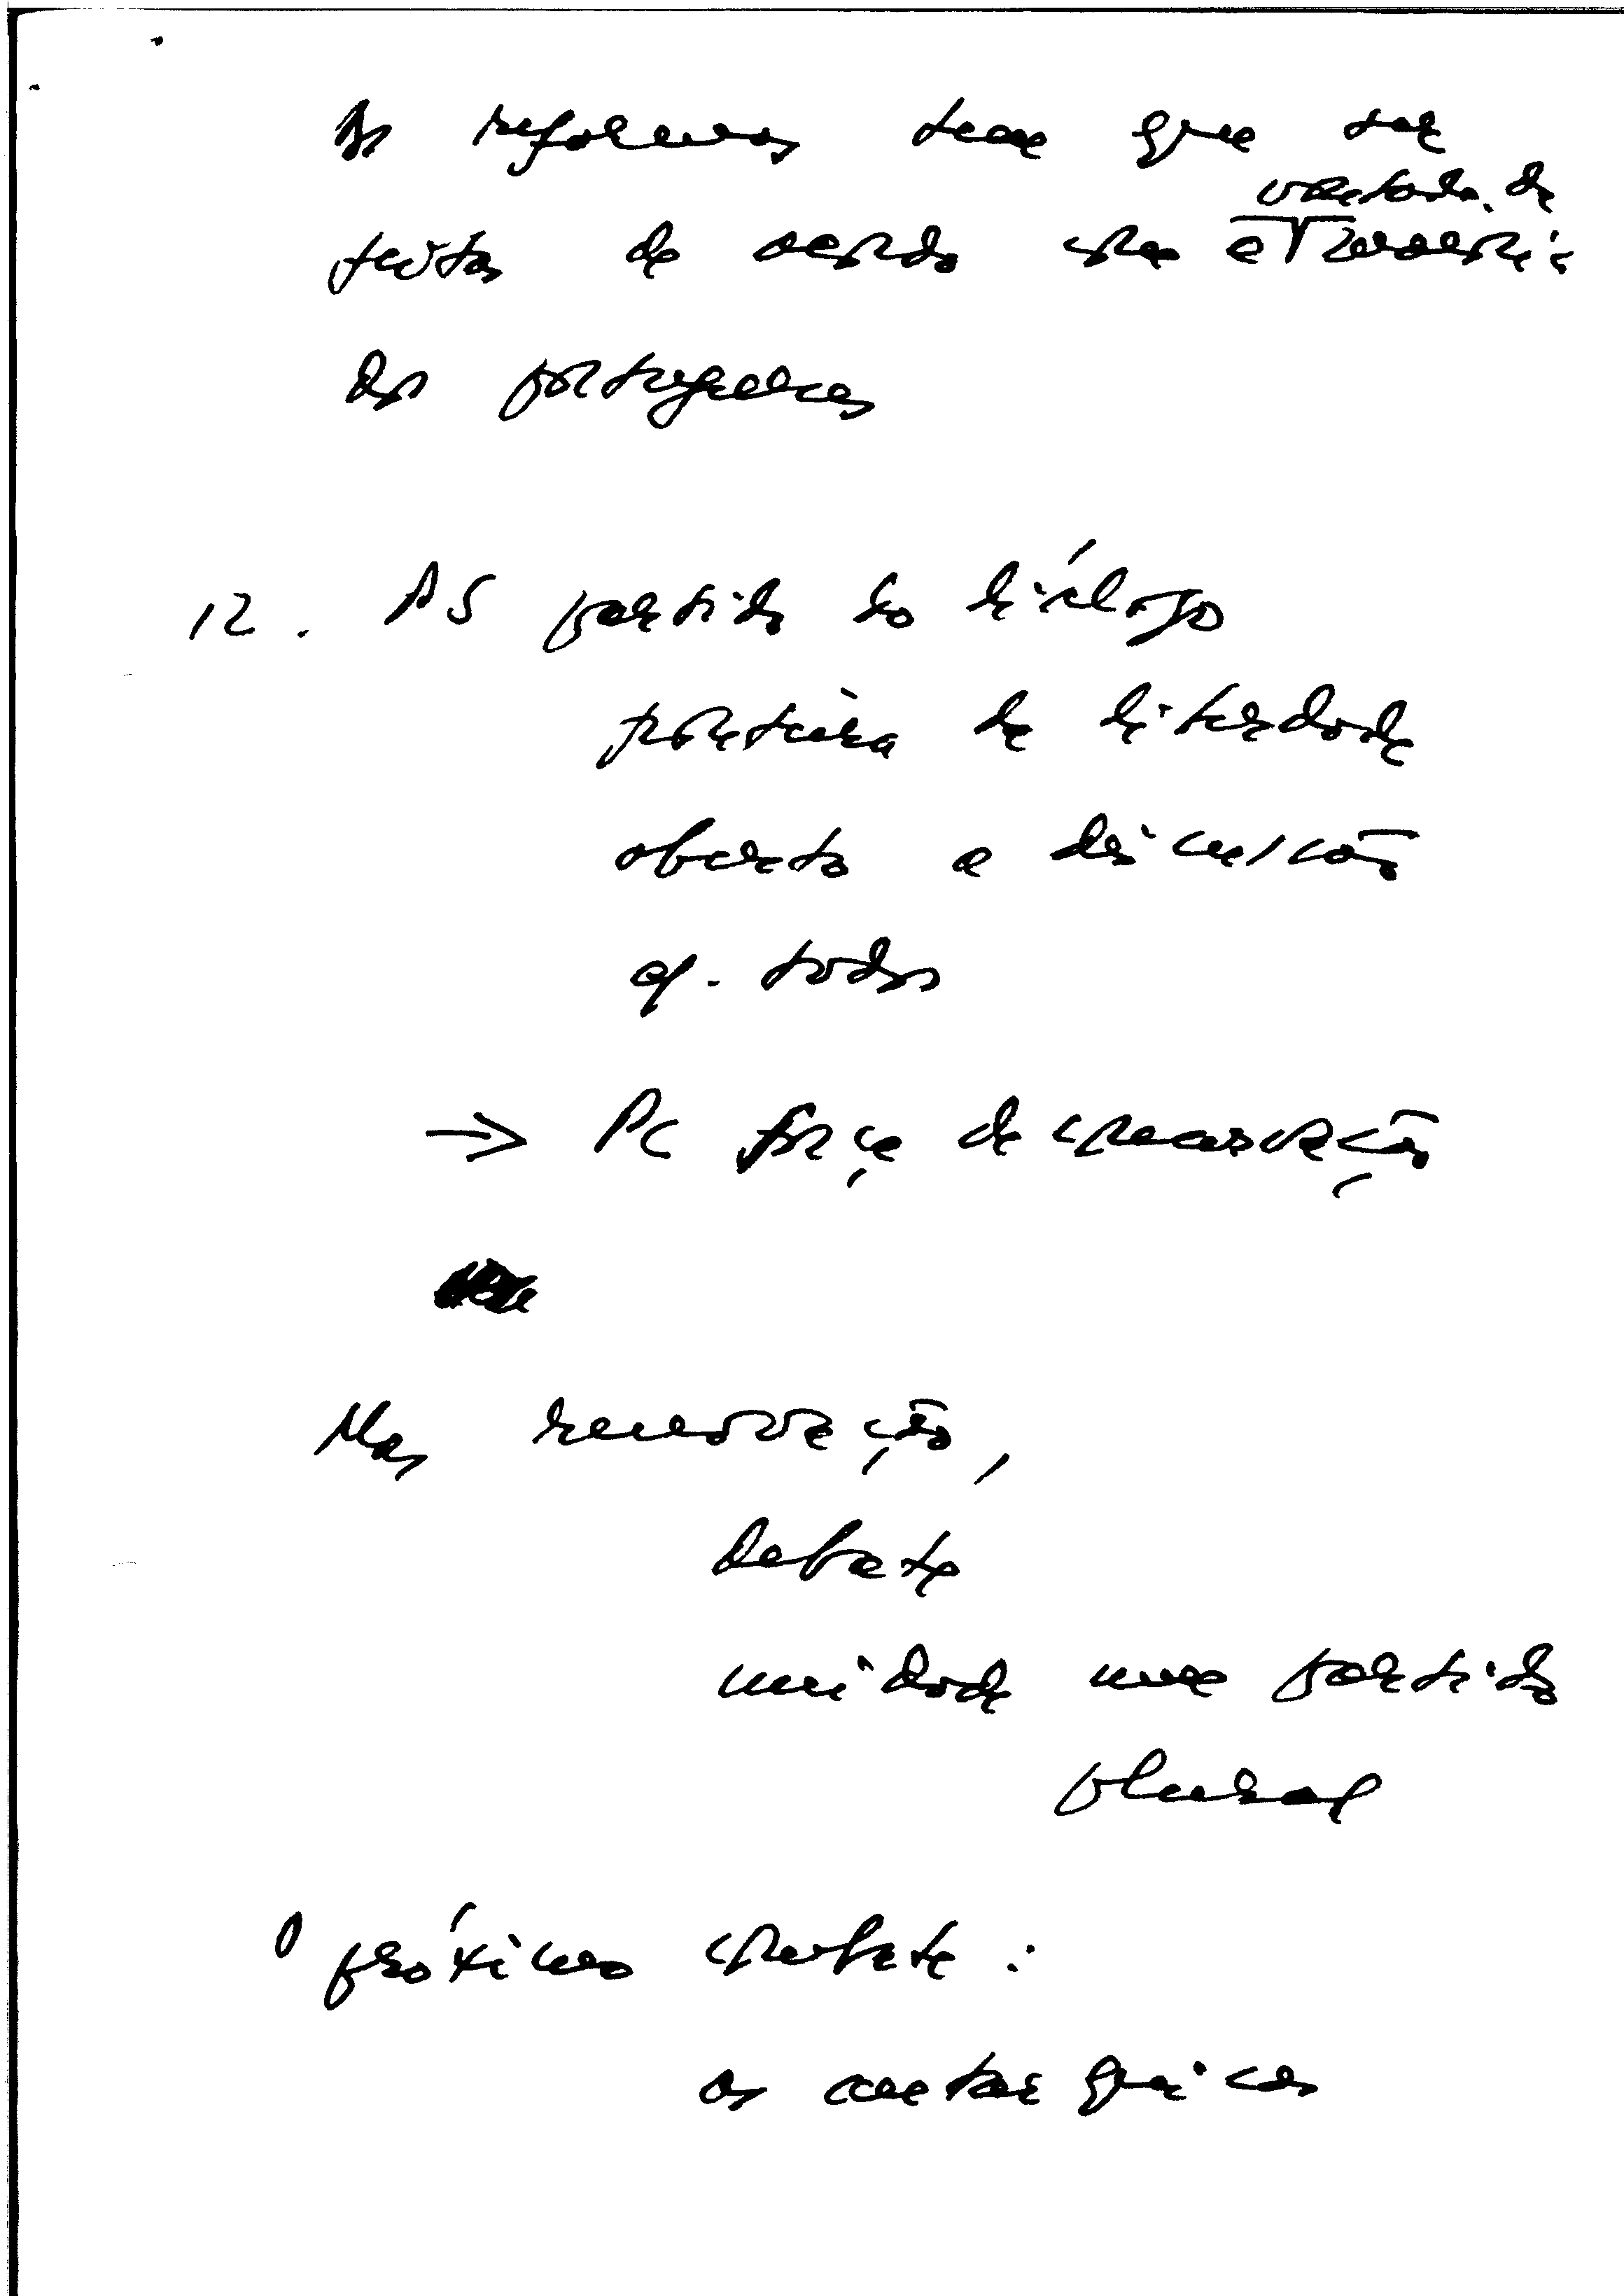 As reformas tem que ser
feitas de acordo com a vontade da maioria
dos portugueses
12. PS partido do diálogo
fronteira de liberdade
aberto a discussão
c/. todos
→ PC força de conservação
Mas renovação,
debate
unidade num partido
plural
O próximo combate:
as autárquicas